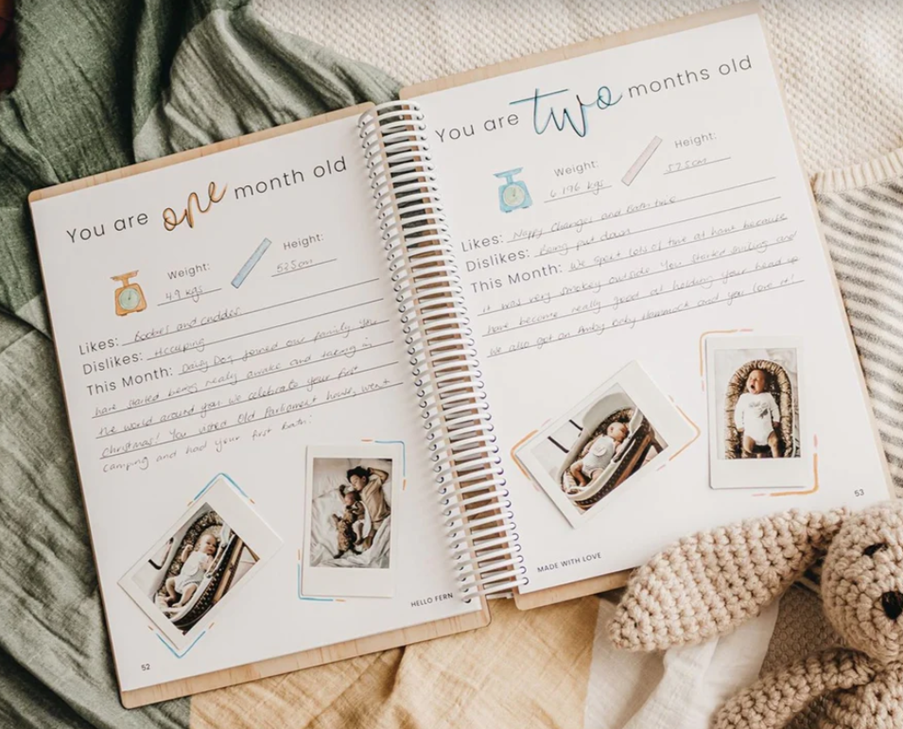 You are one month old
Weight:
4.9 kgs
Height:
52.5cm
Likes: Boobies and cuddles
Dislikes: Hiccuping
This Month: Daisy Dog joined our family. You
have started being really awake and taking in
the world around you. We celebrate your first
christmas! You visited Old Parliament house, went
camping and had your first bath!
HELLO FERN
52
You are two months old
Weight:
6.196 kgs
Height:
57.5cm
Likes: Nappy Changes and Bath time
Dislikes: Being put down
This Month: We spent lots of time at home because
it was very smokey outside. You started smiling and
have become really good at holding your head up
We also got an Amby baby Hammock and you love it!
MADE WITH LOVE
53